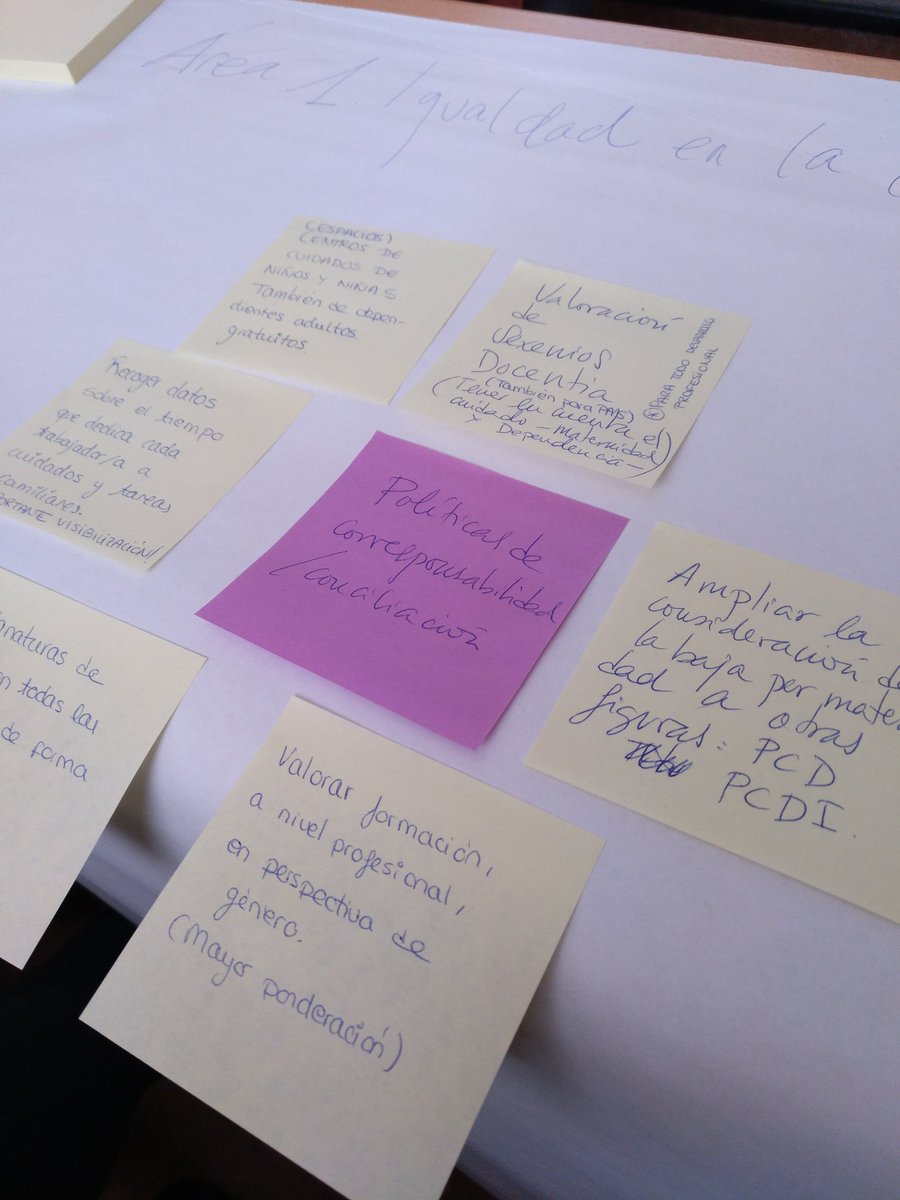 Área 1. Igualdad en la
(ESPACIOS)
CENTROS DE
CUIDADOS DE
NIÑOS Y NIÑAS.
También de depen-
dientes adultos
gratuitos
Valoración
de
Sexenios
Docentia
(También para PAS)
(Tener en cuenta el
cuidado - maternidad
y Dependencia -)
* PARA TODO DESARROLLO
PROFESIONAL
Recoger datos
sobre el tiempo
que dedica cada
trabajador/a a
cuidados y tareas
familiares.
PORTANTE VISIBILIZACIÓN!
Políticas de
corresponsabilidad
/conciliación
Ampliar la
consideración de
la baja per mater
dad a otras
figuras: PCD
PCDI.
naturas de
n todas las
de forma
Valorar formación,
a nivel profesional,
en perspectiva de
género.
(Mayor ponderación)